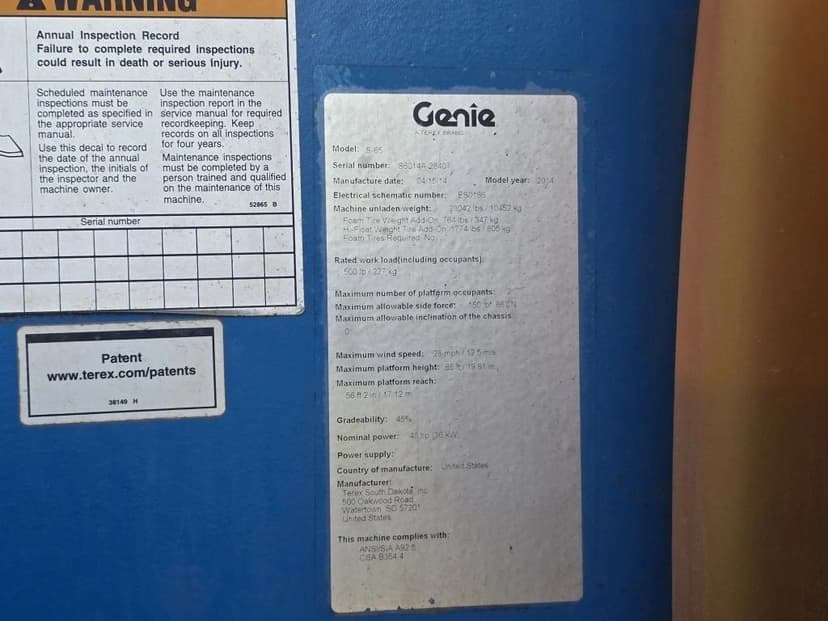 WARNING
Annual Inspection Record
Failure to complete required inspections
could result in death or serious injury.
Scheduled maintenance
inspections must be
completed as specified in
the appropriate service
manual.
Use this decal to record
the date of the annual
inspection, the initials of
the inspector and the
machine owner.
Use the maintenance
inspection report in the
service manual for required
recordkeeping. Keep
records on all inspections
for four years.
Maintenance inspections
must be completed by a
person trained and qualified
on the maintenance of this
machine.
52865 B
Serial number
Patent
www.terex.com/patents
38149 H
Genie
A TEREX BRAND
Model: S-65
Serial number:
Manufacture date: 04/15/14 Model year: 2014
Electrical schematic number:
Machine unladen weight: / 10452 kg
Foam Tire Weight Add-On: 764 lbs / 347 kg
Hi-Float Weight Tire Add-On: 1774 lbs / 805 kg
Foam Tires Required: No
Rated work load(including occupants):
500 lb / 227 kg
Maximum number of platform occupants: 2
Maximum allowable side force: 150 lbf
Maximum allowable inclination of the chassis
0°
Maximum wind speed: 28 mph / 12.5 m/s
Maximum platform height: 65 ft / 19.81 m
Maximum platform reach:
56 ft 2 in / 17.12 m
Gradeability: 45%
Nominal power: 48 hp /36 kW
Power supply:
Country of manufacture: United States
Manufacturer:
Terex South Dakota, Inc
500 Oakwood Road
Watertown, SD 57201
United States
This machine complies with:
ANSI/SIA A92.5
CSA B354.4